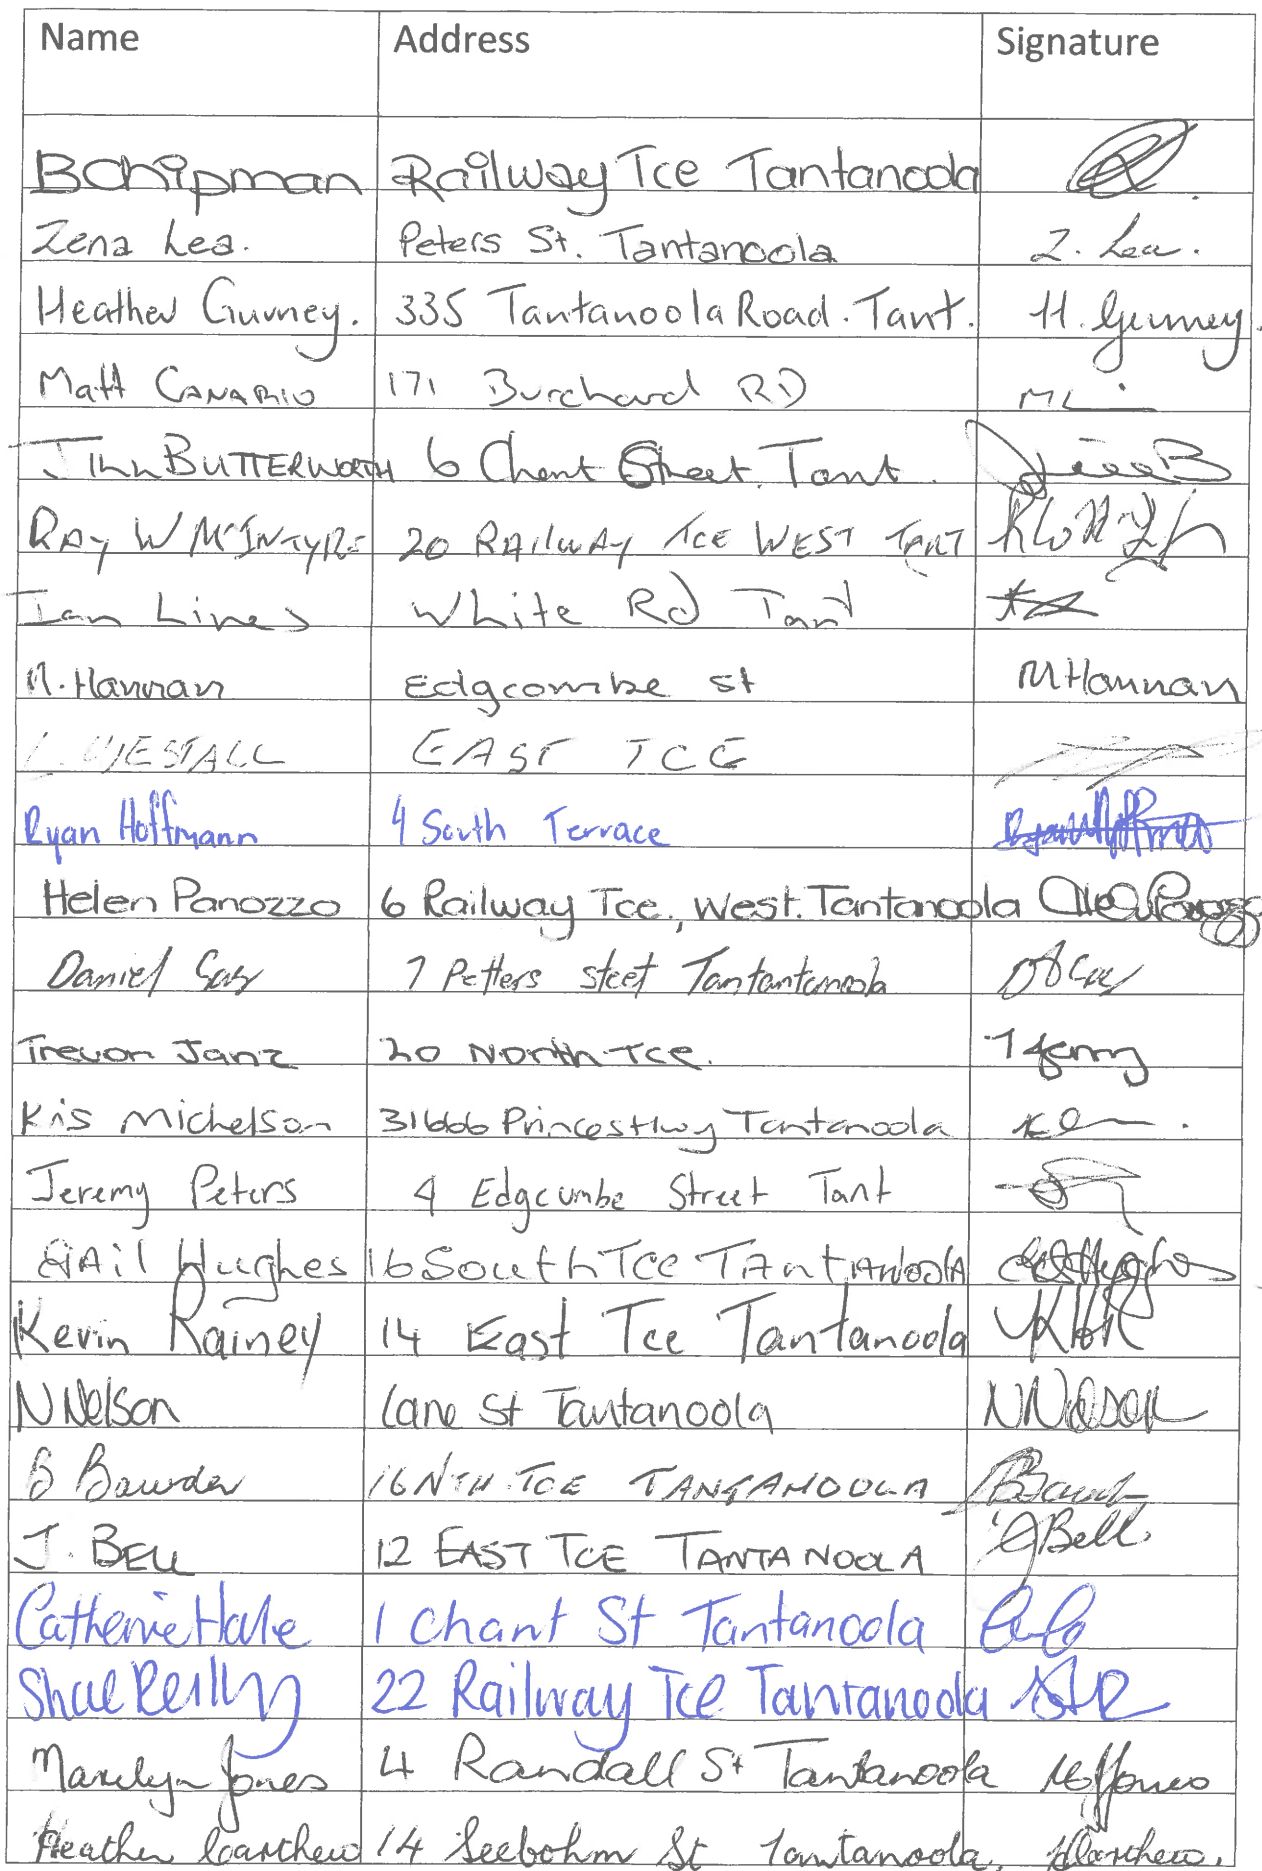 Name Address Signature
BChipman Railway Tce Tantanoola
Zena Lea. Peters St. Tantanoola Z. Lea.
Heather Gurney. 335 Tantanoola Road. Tant. H. Gurney.
Matt CANARIO 171 Burchard RD
JILL BUTTERWORTH 6 Chant Street. Tant.
RAY W McINTYRE 20 RAILWAY TCE WEST TANT
Ian Lines White Rd Tant
M. Hannan Edgcombe st MHannan
WESTALL EAST TCE
Ryan Hoffmann 4 South Terrace
Helen Panozzo 6 Railway Tce., West. Tantanoola
Daniel 7 Petters steet Tantantanoola
Trevor Janz 20 North Tce.
Kris Michelson 31666 Princes Hwy Tantanoola
Jeremy Peters 4 Edgcumbe Street Tant
GAil Hughes 16 South Tce TAntANoolA
Kevin Rainey 14 East Tce Tantanoola
N Nelson Lane St Tantanoola N Nelson
B Bawden 16 NTH TCE TANTANOOLA
J. BELL 12 EAST TCE TANTANOOLA J Bell
Catherine Hale 1 Chant St Tantanoola
Shae Reilly 22 Railway Tce Tantanoola
Marilyn Jones 4 Randall St Tantanoola
Heather Carthew 14 Seebohm St Tantanoola. HCarthew.